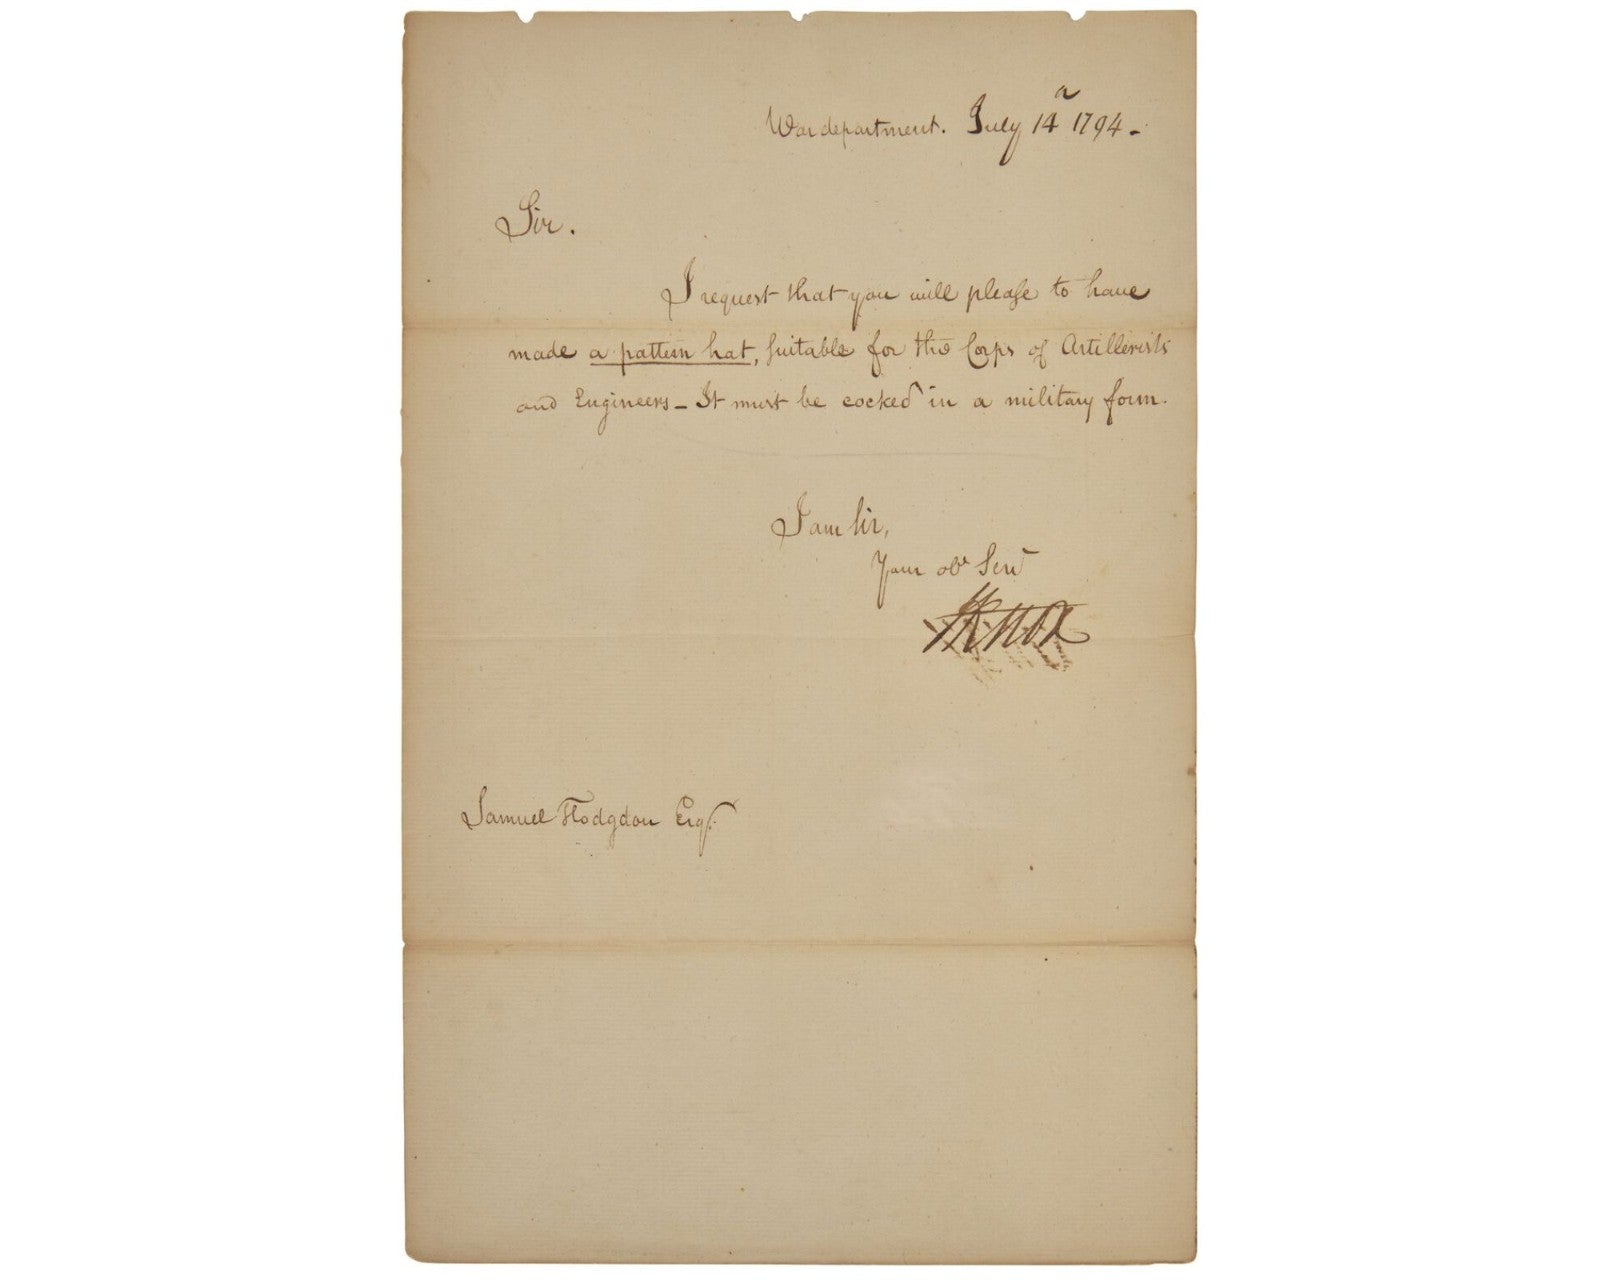 War department. July 14 1794.
Sir.
I request that you will please to have
made a pattern hat, suitable for the Corps of Artillerists
and Engineers_ It must be cocked in a military form.
I am Sir,
Your obt Servt
HKnox
Samuel Hodgdon Esqr.